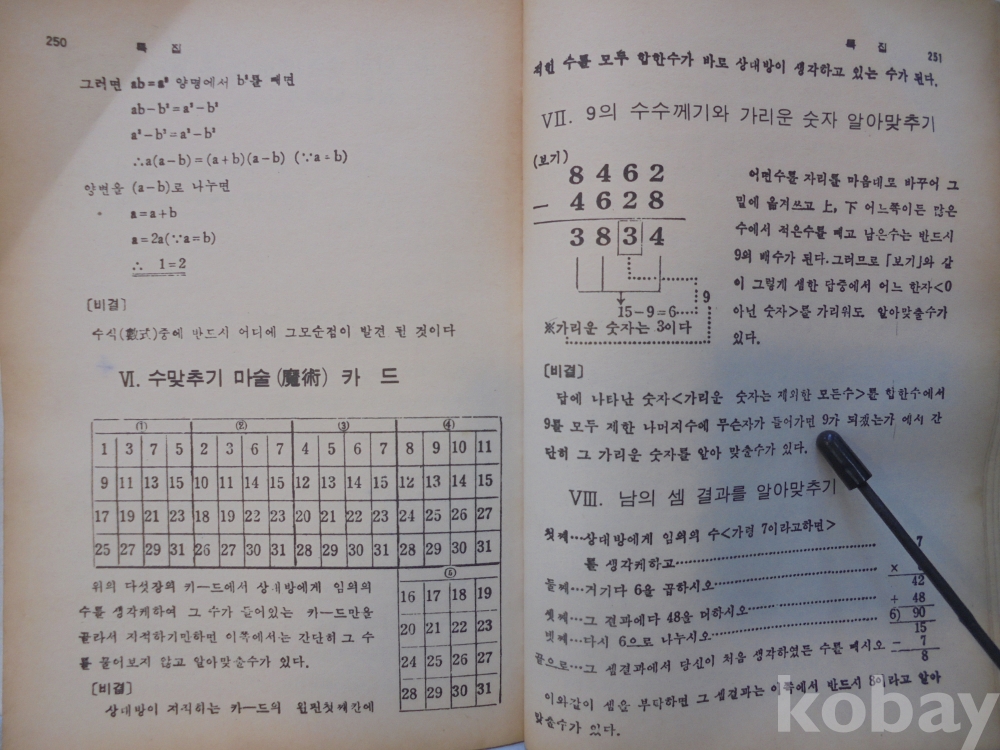 250
특 집
그러면 ab=a² 양명에서 b²를 빼면
ab-b²=a²-b²
a²-b²=a²-b²
∴a(a-b)=(a+b)(a-b) (∵a=b)
양변을 (a-b)로 나누면
a=a+b
a=2a(∵a=b)
∴ 1=2
〔비결〕
수식(數式)중에 반드시 어디에 그모순점이 발견 된 것이다
Ⅵ. 수맞추기 마술(魔術) 카 드
① ② ③ ④
1 3 7 5 2 3 6 7 4 5 6 7 8 9 10 11
9 11 13 15 10 11 14 15 12 13 14 15 12 13 14 15
17 19 21 23 18 19 22 23 20 21 22 23 24 25 26 27
25 27 29 31 26 27 30 31 28 29 30 31 28 29 30 31
⑤
16 17 18 19
20 21 22 23
24 25 26 27
28 29 30 31
위의 다섯장의 카ー드에서 상대방에게 임의의
수를 생각케하여 그 수가 들어있는 카ー드만을
골라서 지적하기만하면 이쪽에서는 간단히 그 수
를 물어보지 않고 알아맞출수가 있다.
〔비결〕
상대방이 지적하는 카ー드의 왼편첫째칸에
특 집
251
적힌 수를 모두 합한수가 바로 상대방이 생각하고 있는 수가 된다.
Ⅶ. 9의 수수께기와 가리운 숫자 알아맞추기
(보기)
8 4 6 2
- 4 6 2 8
3 8 3 4
9
15-9=6
※가리운 숫자는 3이다
어떤수를 자리를 마음대로 바꾸어 그
밑에 옮겨쓰고 上, 下 어느쪽이든 많은
수에서 적은수를 빼고 남은수는 반드시
9의 배수가 된다.그러므로 「보기」와 같
이 그렇게 셈한 답중에서 어느 한자<0
아닌 숫자>를 가리워도 알아맞출수가
있다.
〔비결〕
답에 나타난 숫자<가리운 숫자는 제외한 모든수>를 합한수에서
9를 모두 제한 나머지수에 무슨자가 들어가면 9가 되겠는가 에서 간
단히 그 가리운 숫자를 알아 맞출수가 있다.
Ⅷ. 남의 셈 결과를 알아맞추기
첫째…상대방에게 임의의 수<가령 7이라고하면>
를 생각케하고
7
둘째…거기다 6을 곱하시오
×
42
셋째…그 결과에다 48을 더하시오
+ 48
넷째…다시 6으로 나누시오
6) 90
15
끝으로…그 셈결과에서 당신이 처음 생각하였든 수를 빼시오
- 7
8
이와같이 셈을 부탁하면 그 셈결과는 이쪽에서 반드시 8이라고 알아
맞출수가 있다.
kobay